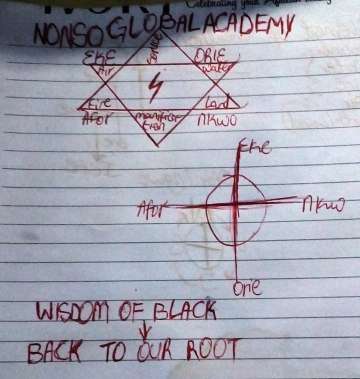 Celebrating your
NONSO GLOBAL ACADEMY
EKE
Air
ORIE
Water
Fire
Afor
Land
NKWO
Eke
Afor
Nkwo
Orie
WISDOM OF BLACK
BACK TO OUR ROOT